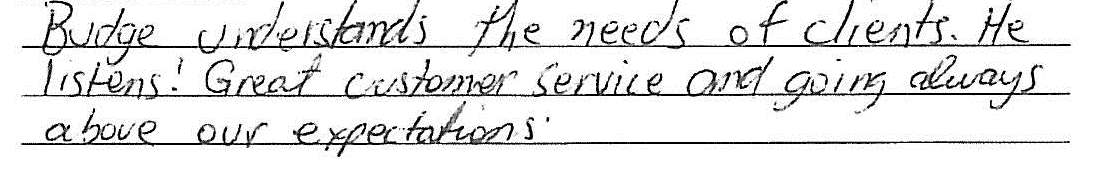 Budge understands the needs of clients. He
listens! Great customer service and going always
above our expectations.